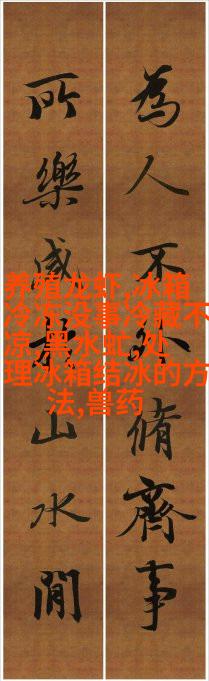 為人不脩齊事
所樂咸山水間
养殖龙虾,冰箱
冷冻没事冷藏不
凉,黑水虻,处
理冰箱结冰的方
法,兽药